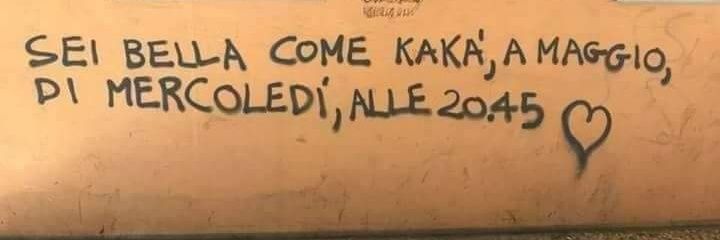 SEI BELLA COME KAKÁ, A MAGGIO,
DI MERCOLEDÍ, ALLE 20.45